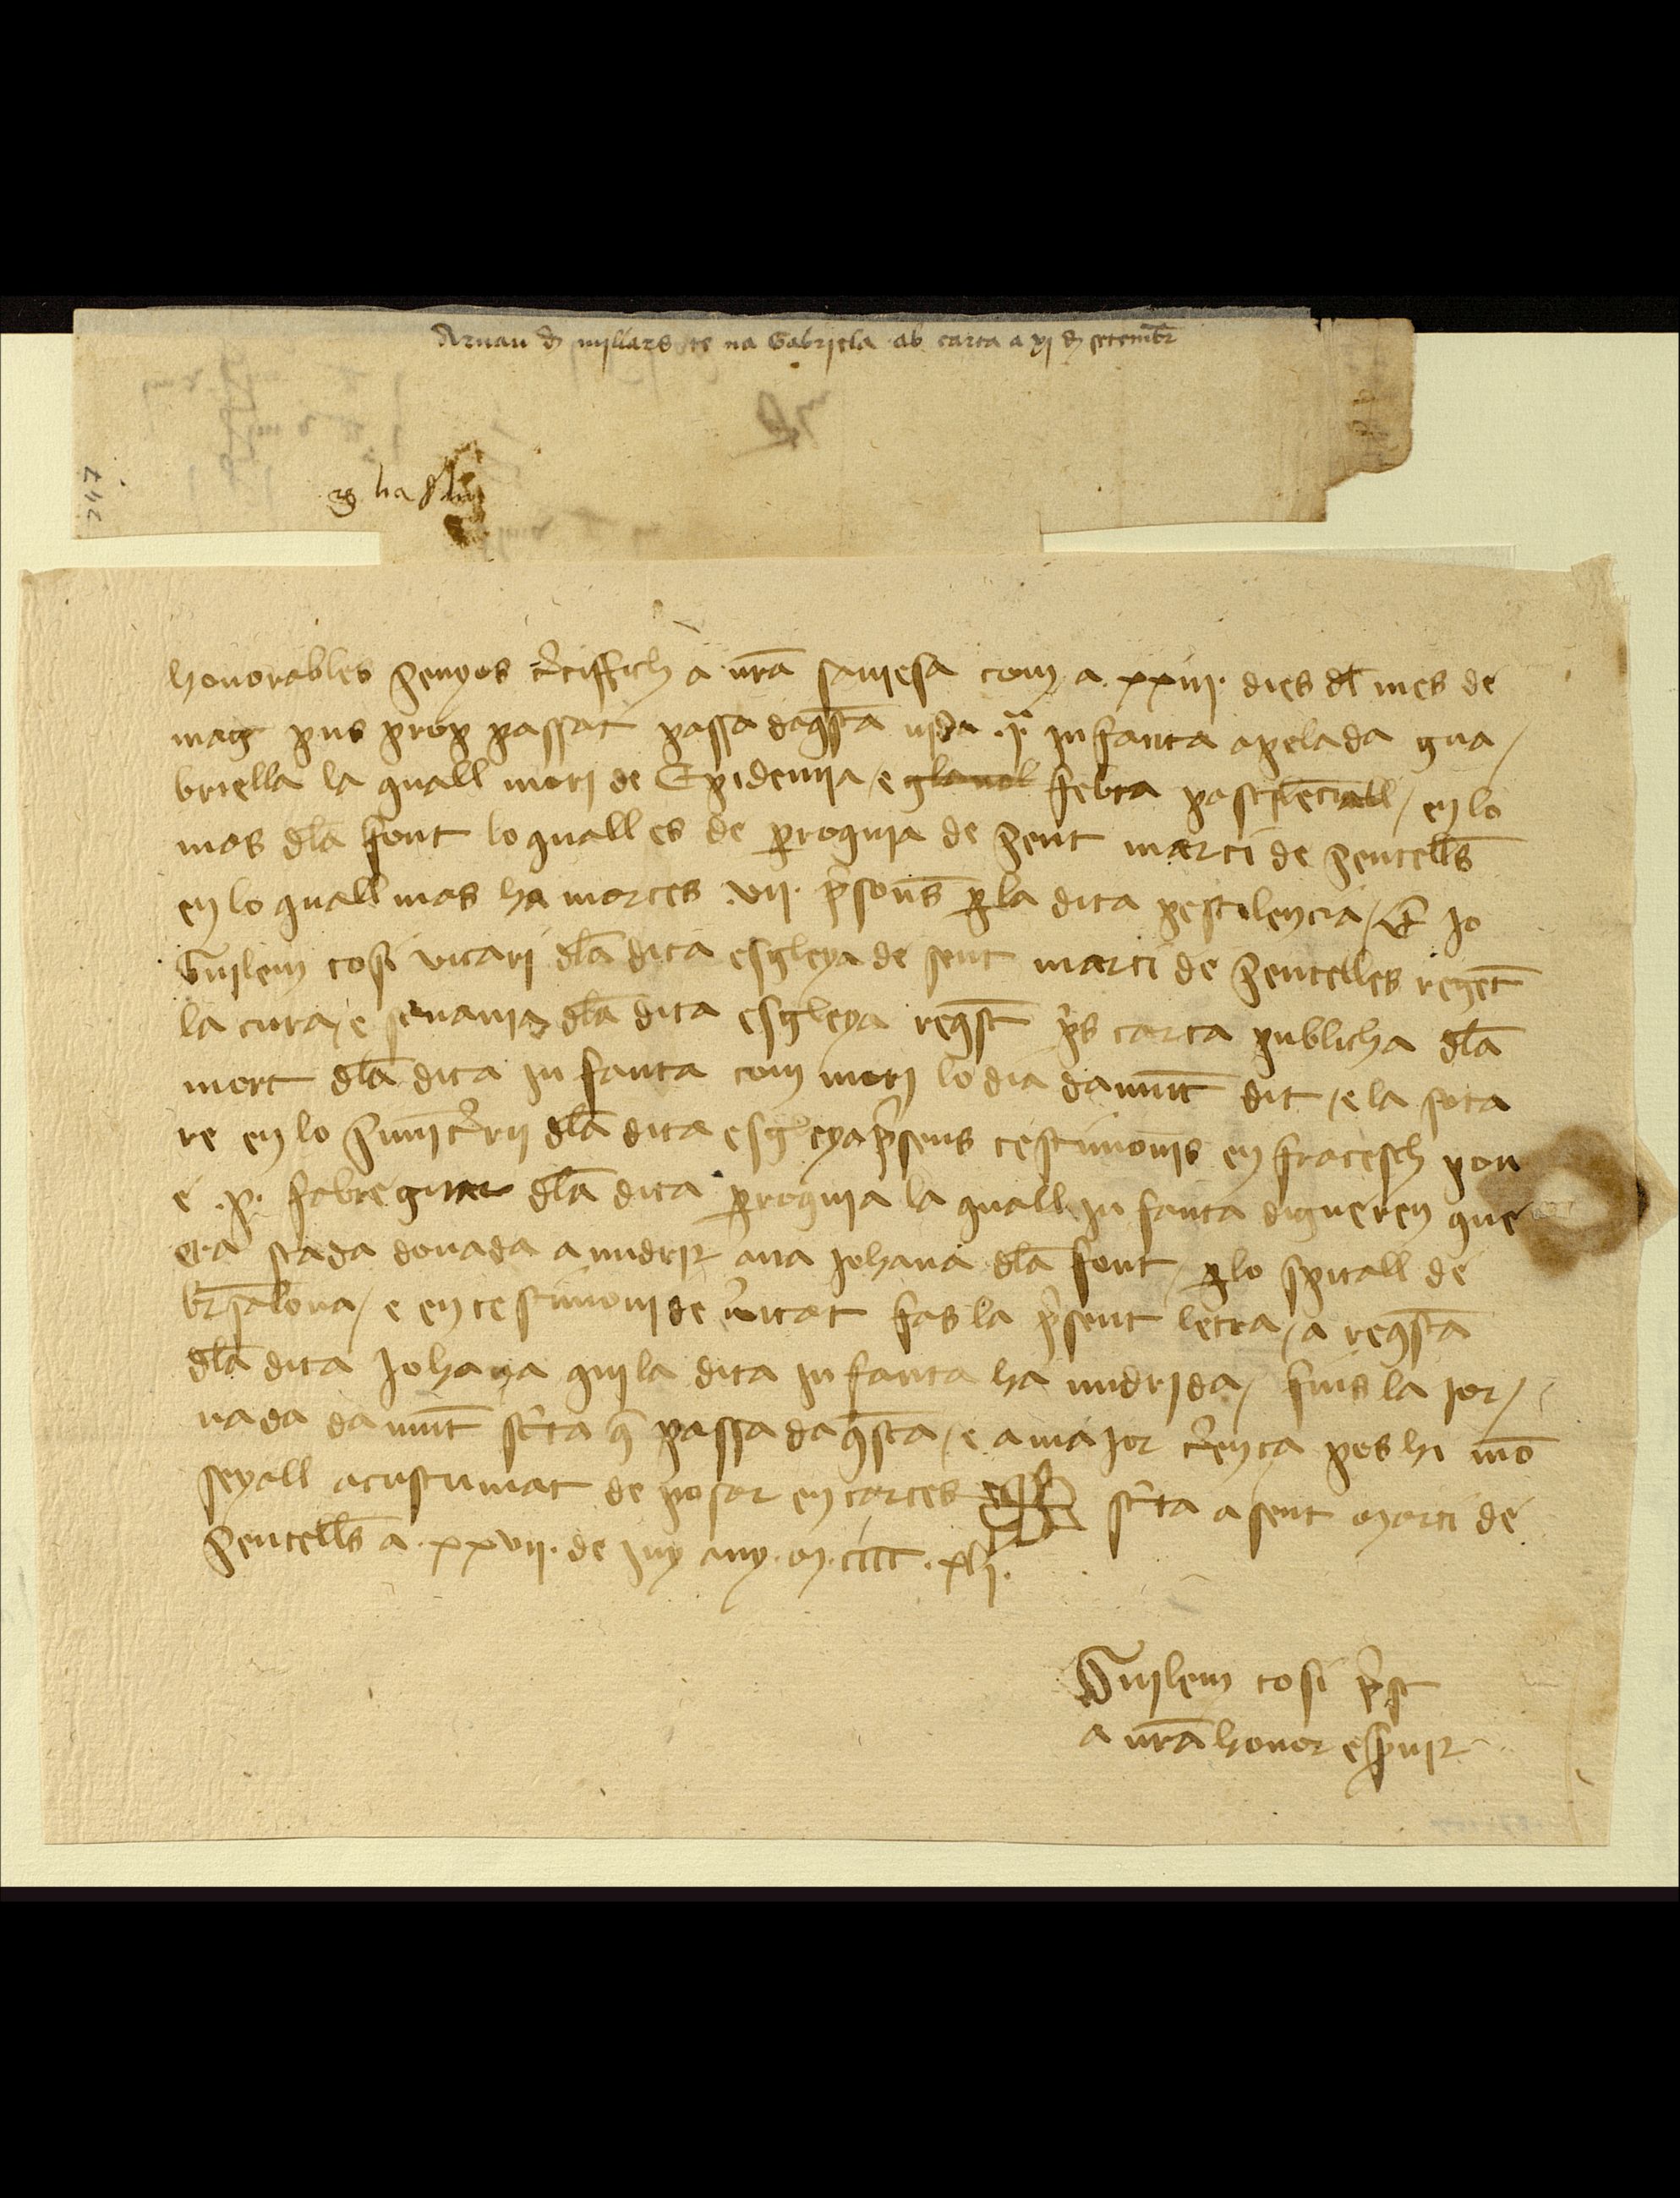 Arnau d millars te na Gabriela ab carta a xj d setembr
ha
247
honorables senyos certiffich a vra saviesa com a .xxiii. dies dl mes de
mag pus prop passat passa daqsta vida .ja. infanta apelada gua/
briella la quall mori de Epidemia / e glanol febra pastilenciall / en lo
mas dla font lo quall es de perroquia de sent marti de sentells
en lo quall mas ha mortes .vii. psones per la dita pestilencia / E jo
Guilem cosi vicari dla dita esgleya de sent marti de sentelles regent
la cura / e dla dita esgleya reqst ps carta publicha dla
mort dla dita infanta com mori lo dia damunt dit / e la sota
re en lo simiteri dla dita esgleya psens testimonis en francesch pou
e .p. fabreguer dla dita perroquia la quall infanta digueren que
era stada donada a nudrir a na johana dla font / per lo spitall de
brsalona / e en testimoni de veritat fas la psent letra / a reqsta
dla dita johana qui la dita infanta ha nudrida / fins la jor/
nada damunt scrita q passa daqsta / e a major crenca pos hi mon
seyall acustumat de posar en cartes scrita a sent marti de
sentells a .xxvii. de juy any .m.cccc.xlj.
Guilem cosi pst
a vra honor e servir